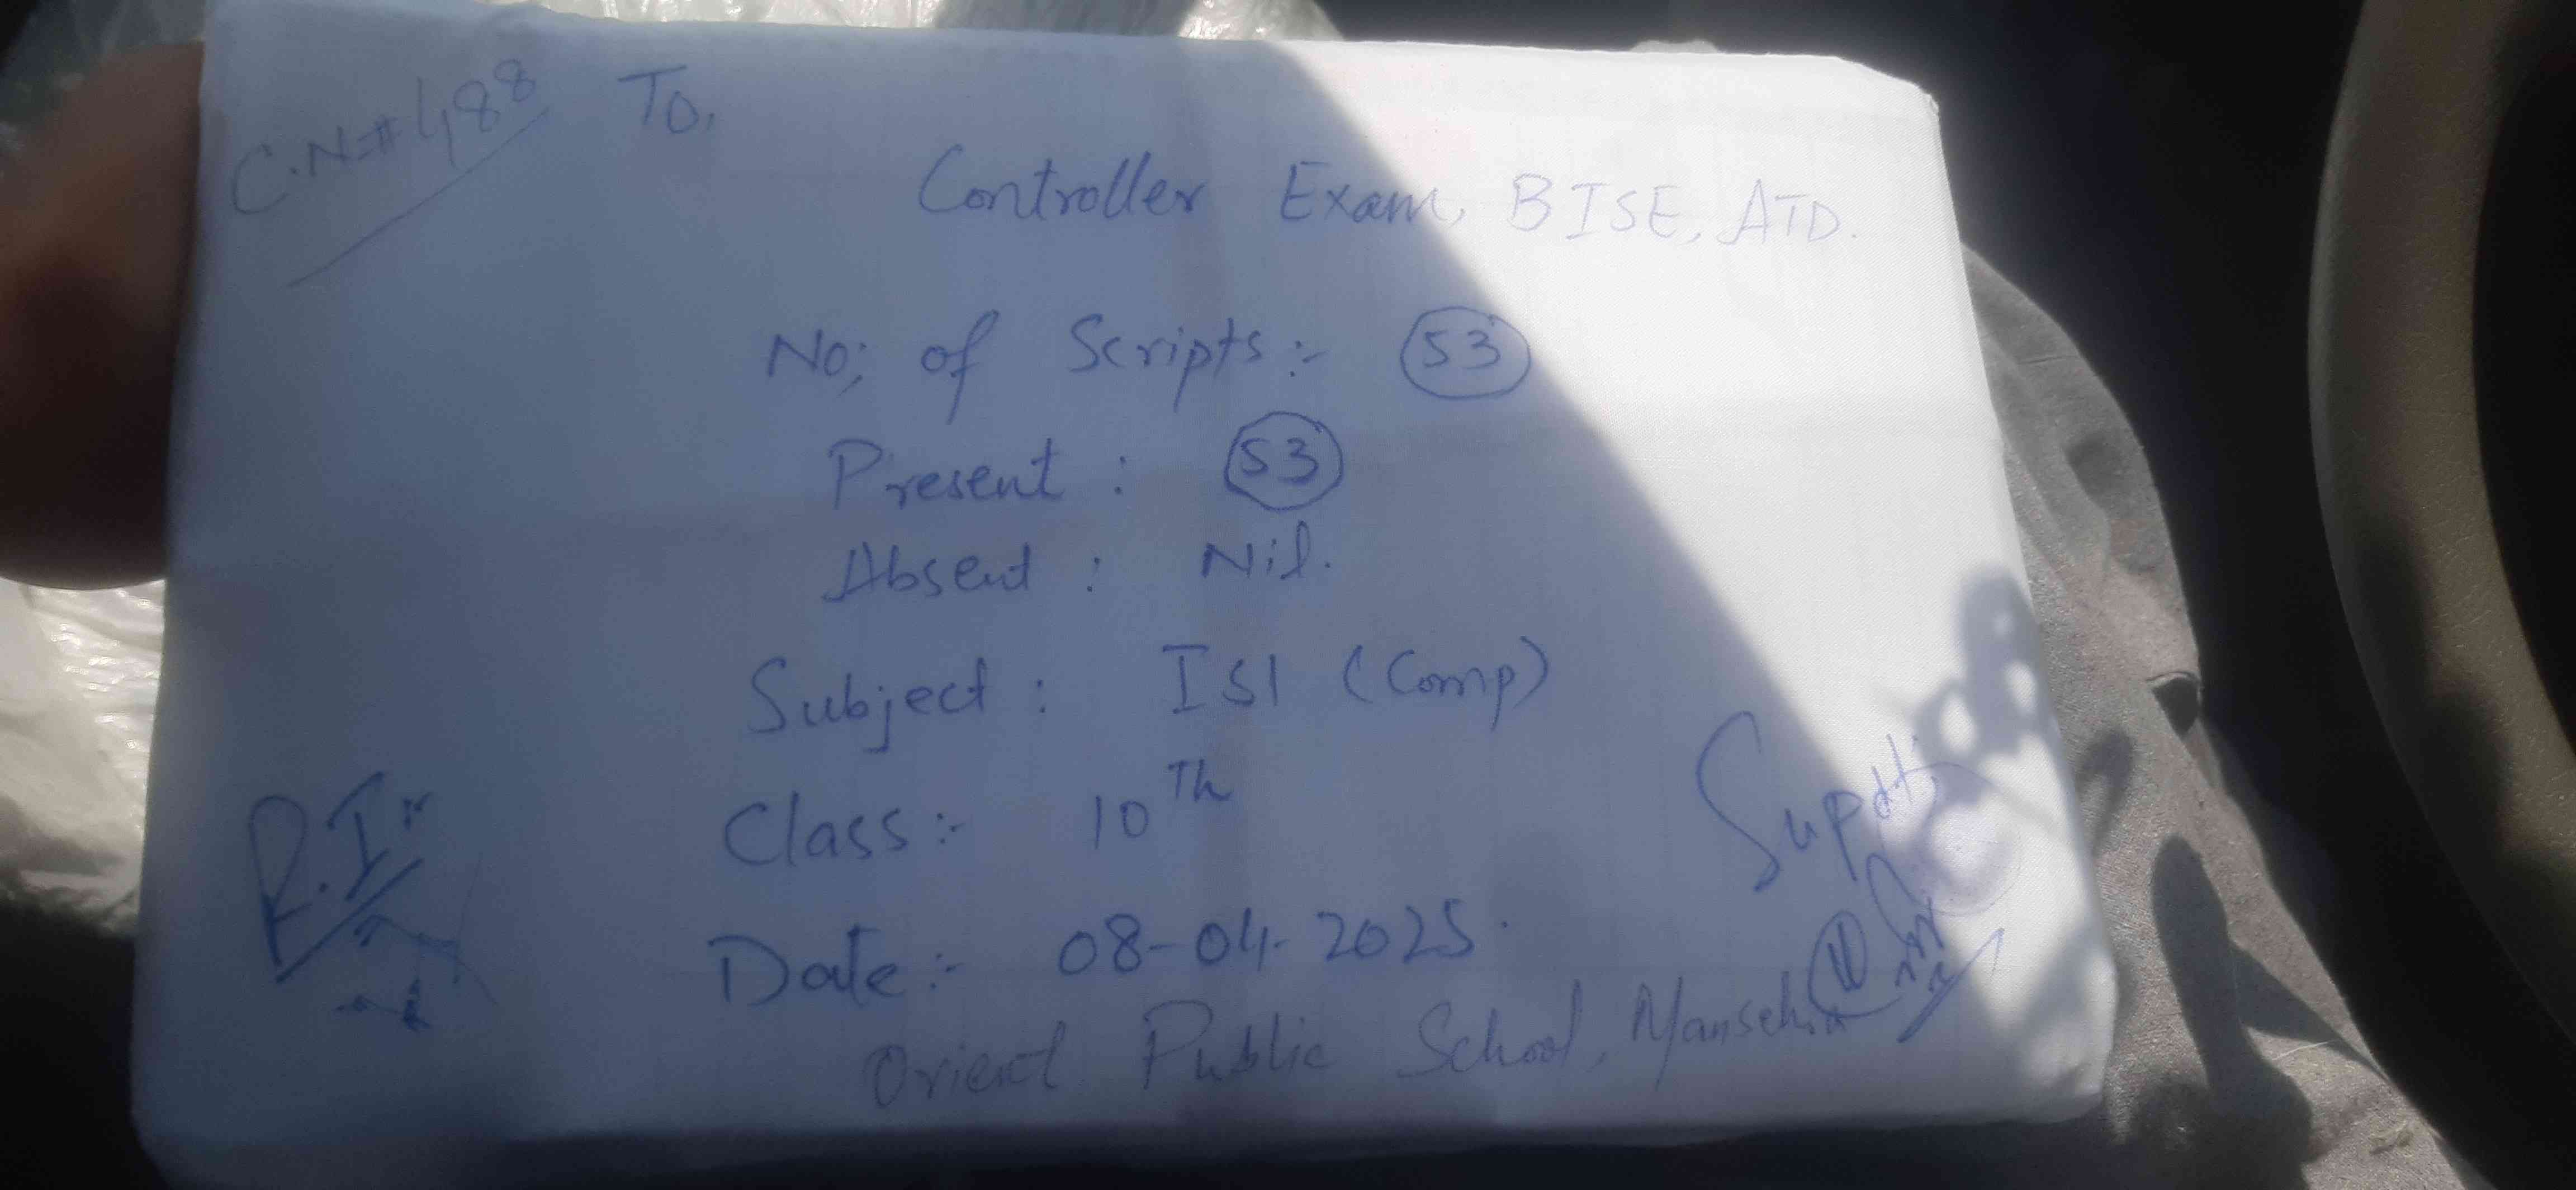 C.N=#488
To,
Controller Exam, BISE, ATD.
No; of Scripts:- 53
Present : 53
Absent : Nil.
Subject : ISl (Comp)
Class:- 10Th
Date:- 08-04-2025.
R.I:-
Supdt:
Orient Public School, Mansehra